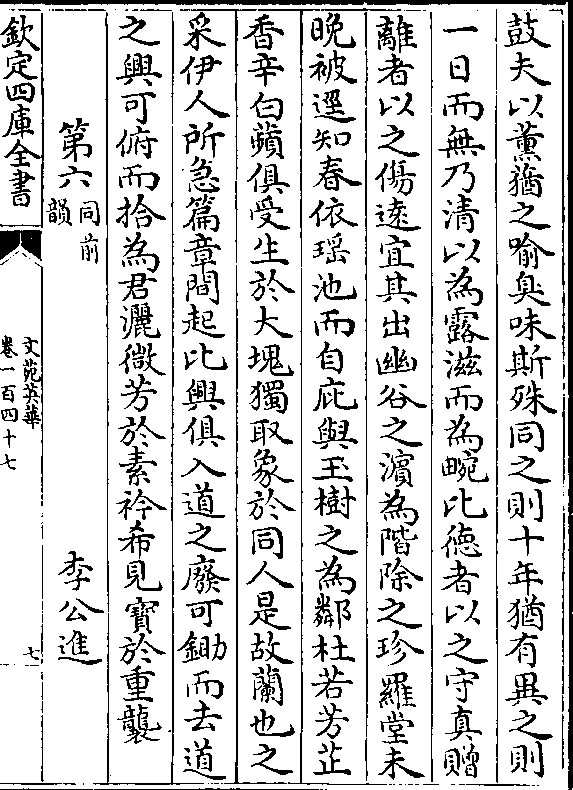 鼓夫以薰猶之喻臭味斯殊同之則十年猶有異之則
一日而無乃清以為露滋而為畹比德者以之守真贈
離者以之傷遠宜其出幽谷之濵為階除之珍羅堂未
晚被選知春依瑶池而自庇與玉樹之為鄰杜若芳芷
香辛白蘋俱受生於大塊獨取象於同人是故蘭也之
采伊人所急篇章間起比興俱入道之廢可鋤而去道
之興可俯而拾為君灑微芳於素衿希見寳於重襲
第六同前韻 李公進
欽定四庫全書
文苑英華
卷一百四十七
七